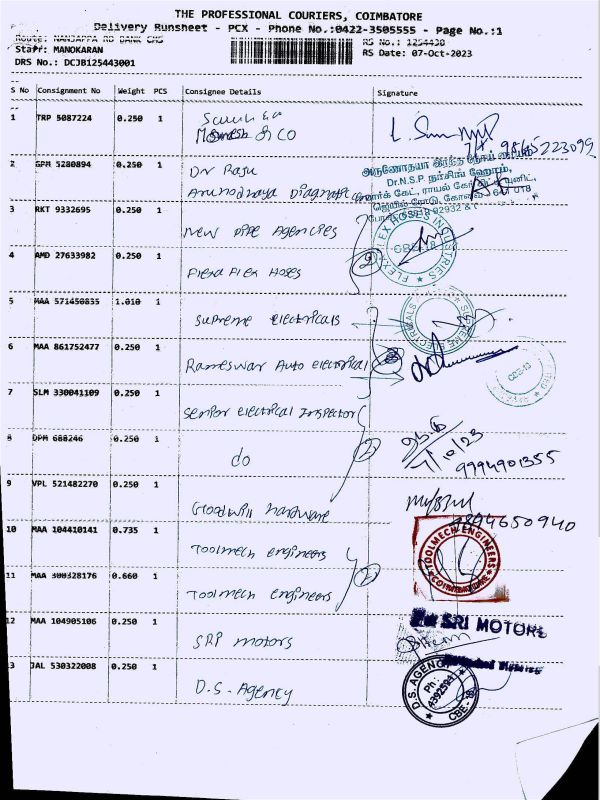 THE PROFESSIONAL COURIERS, COIMBATORE
Delivery Runsheet - PCX - Phone No.:0422-3505555 - Page No.:1
Route: NANJAPPA RD BANK CMS
RS No.: 1254430
Staff: MANOKARAN
RS Date: 07-Oct-2023
DRS No.: DCJB125443001
S No Consignment No Weight PCS Consignee Details Signature
1 TRP 5087224 0.250 1
& CO
7/10 9865223099
2 GPM 5280894 0.250 1 Dr Raju
Arunodhaya Diagnostic
Dr.N.S.P. நர்சிங் ஹோம்,
3 RKT 9332695 0.250 1 New Pipe Agencies
4 AMD 27633982 0.250 1 Flexa Flex Hoses
FLEXA FLEX HOSES INDUSTRIES
CBE-18
2
5 MAA 571450835 1.010 1 Supreme Electricals
SUPREME ELECTRICALS
6 MAA 861752477 0.250 1 Rameswar Auto electrical
CBE-18
7 SLM 330041109 0.250 1 Senior Electrical Inspector
8 DPM 688246 0.250 1 do
2
7/10/23
9994901355
9 VPL 521482270 0.250 1 Goodwill hardware
9894650940
10 MAA 104410141 0.735 1 Toolmech engineers
11 MAA 300328176 0.660 1 Toolmech engineers
2
TOOLMECH ENGINEERS
COIMBATORE
12 MAA 104905106 0.250 1 SRP motors
SRI MOTORS
13 JAL 530322008 0.250 1 D.S. Agency
D.S. AGENCY
Ph:
4392594
CBE-18